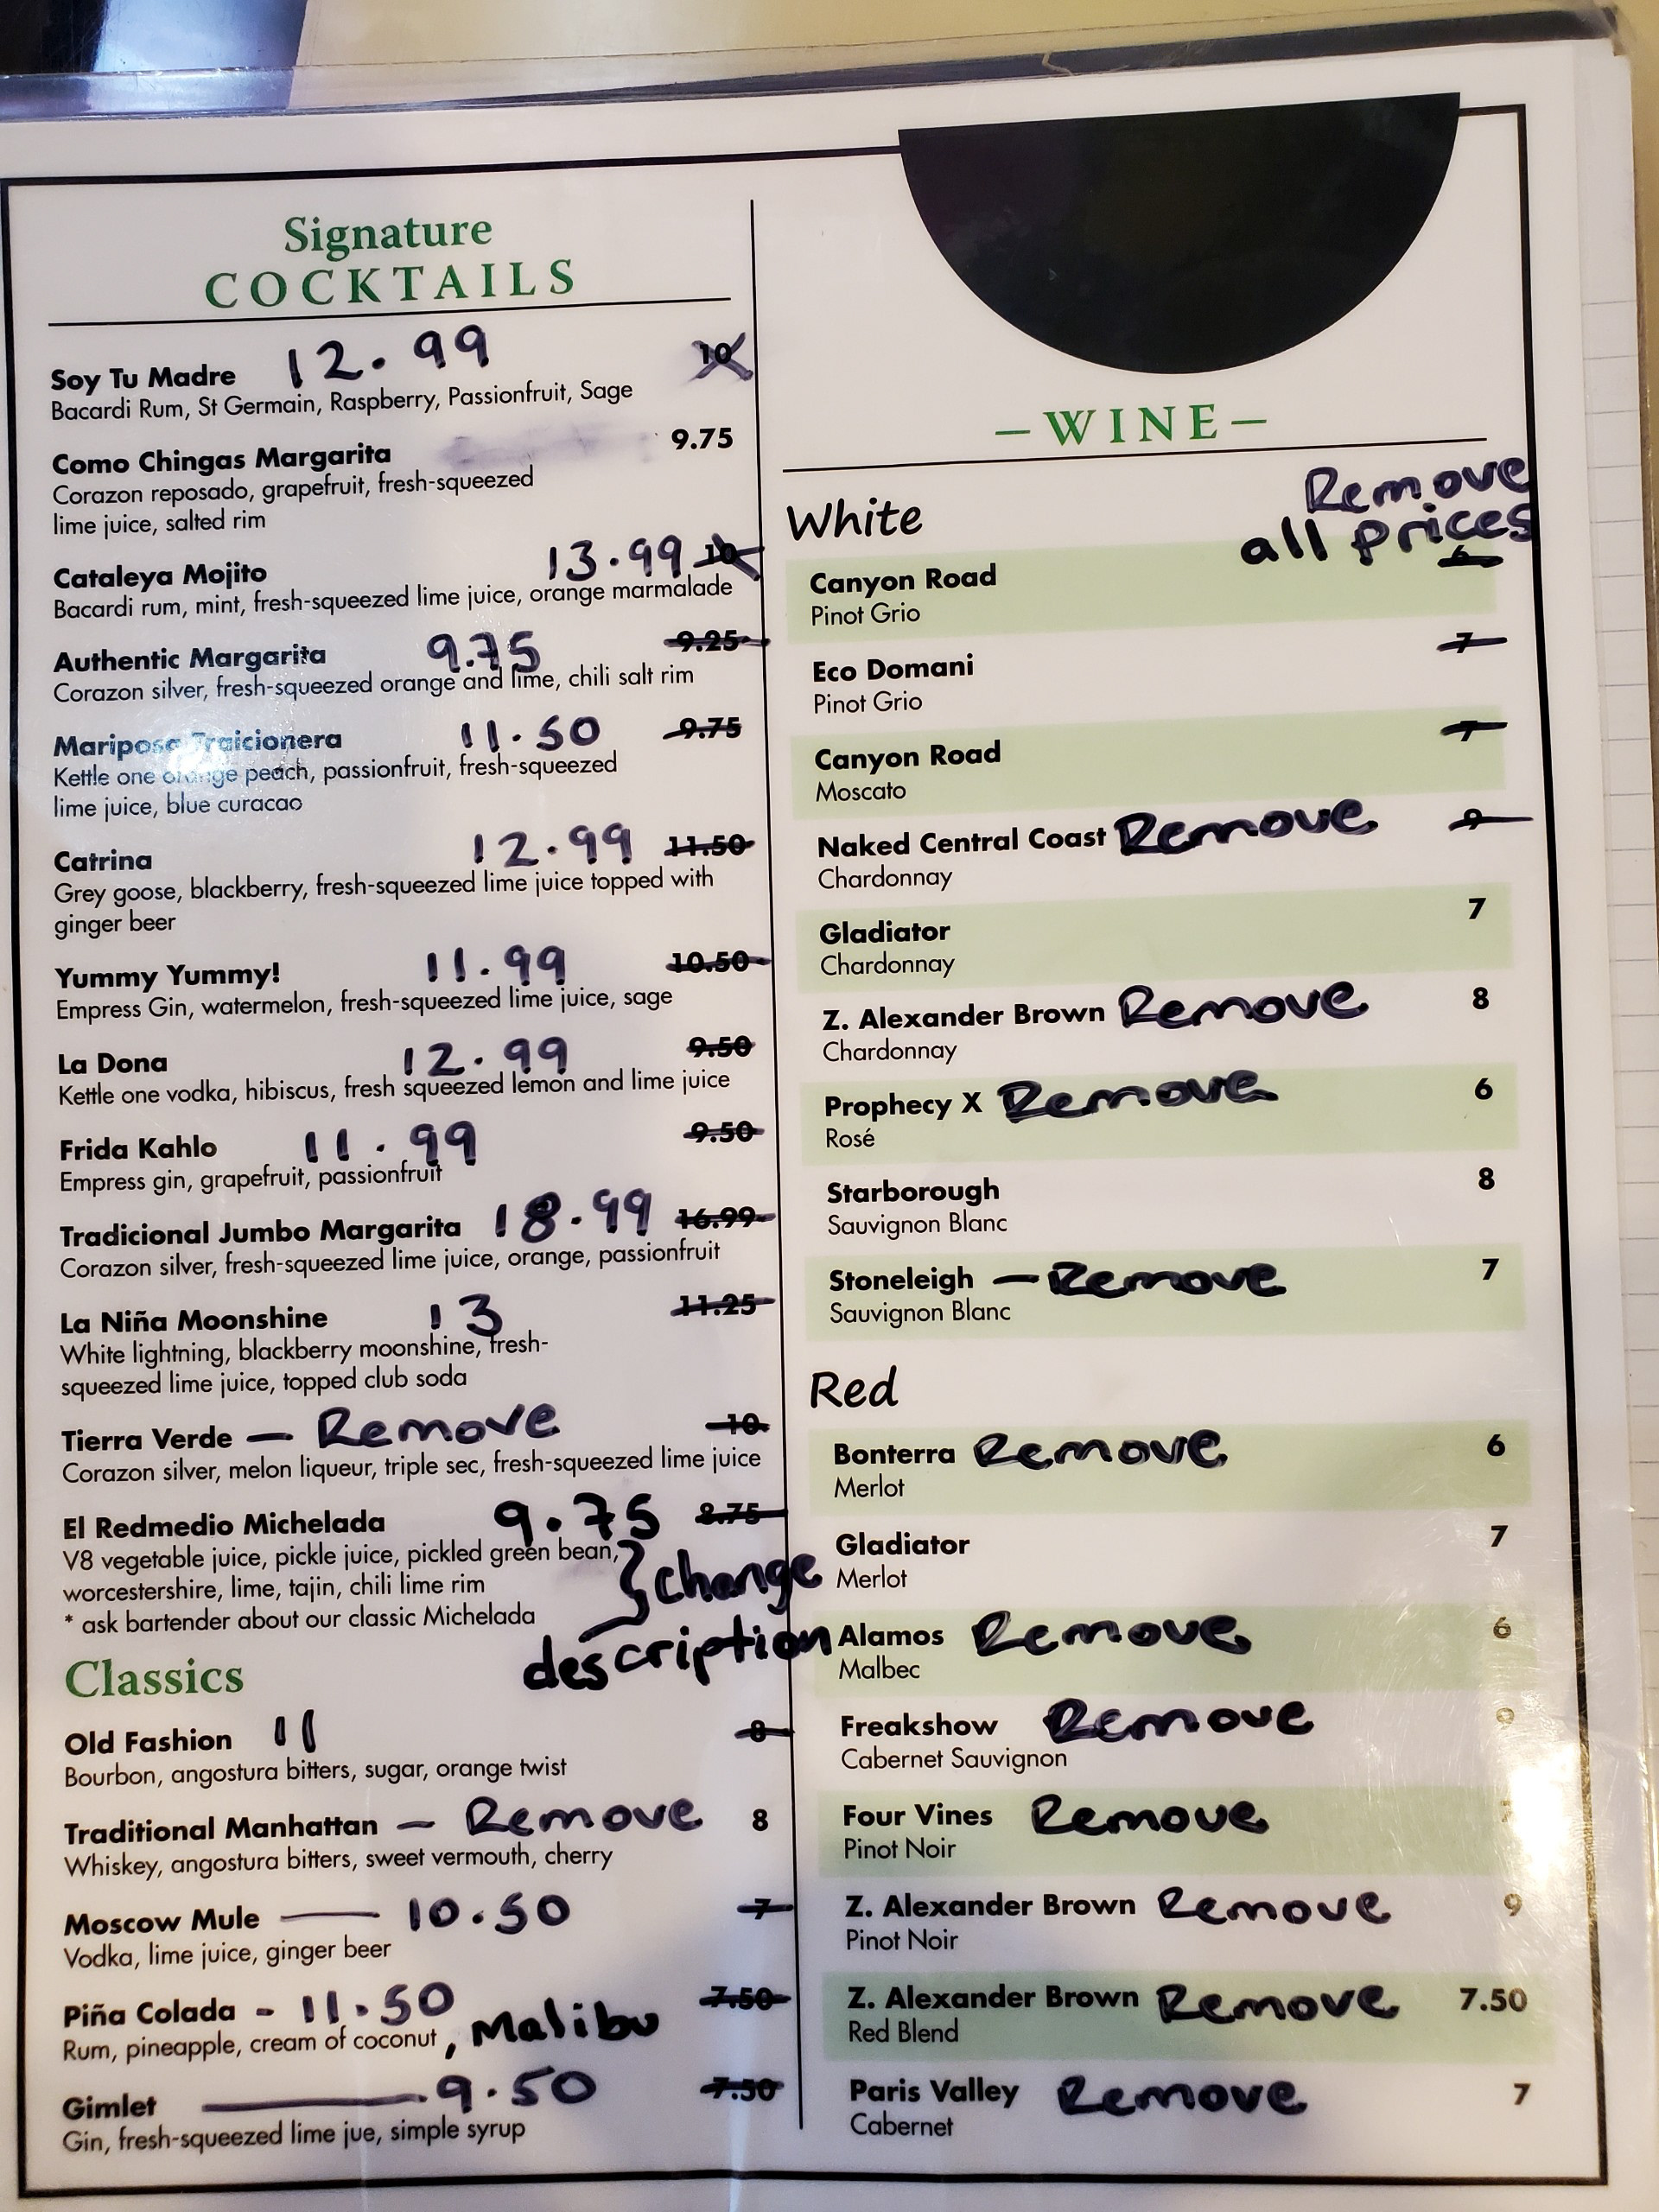 Signature
COCKTAILS
Soy Tu Madre 12.99 10
Bacardi Rum, St Germain, Raspberry, Passionfruit, Sage
Como Chingas Margarita 9.75
Corazon reposado, grapefruit, fresh-squeezed
lime juice, salted rim
Cataleya Mojito 13.99 10
Bacardi rum, mint, fresh-squeezed lime juice, orange marmalade
Authentic Margarita 9.75 9.25
Corazon silver, fresh-squeezed orange and lime, chili salt rim
Mariposa Traicionera 11.50 9.75
Kettle one orange peach, passionfruit, fresh-squeezed
lime juice, blue curacao
Catrina 12.99 11.50
Grey goose, blackberry, fresh-squeezed lime juice topped with
ginger beer
Yummy Yummy! 11.99 10.50
Empress Gin, watermelon, fresh-squeezed lime juice, sage
La Dona 12.99 9.50
Kettle one vodka, hibiscus, fresh squeezed lemon and lime juice
Frida Kahlo 11.99 9.50
Empress gin, grapefruit, passionfruit
Tradicional Jumbo Margarita 18.99 16.99
Corazon silver, fresh-squeezed lime juice, orange, passionfruit
La Niña Moonshine 13 11.25
White lightning, blackberry moonshine, fresh-
squeezed lime juice, topped club soda
Tierra Verde — Remove 10
Corazon silver, melon liqueur, triple sec, fresh-squeezed lime juice
El Redmedio Michelada 9.75 8.75
V8 vegetable juice, pickle juice, pickled green bean,
worcestershire, lime, tajin, chili lime rim
* ask bartender about our classic Michelada
} change
description
Classics
Old Fashion 11 8
Bourbon, angostura bitters, sugar, orange twist
Traditional Manhattan — Remove 8
Whiskey, angostura bitters, sweet vermouth, cherry
Moscow Mule — 10.50 7
Vodka, lime juice, ginger beer
Piña Colada - 11.50 7.50
Rum, pineapple, cream of coconut , Malibu
Gimlet — 9.50 7.50
Gin, fresh-squeezed lime jue, simple syrup
–WINE–
Remove
all prices
White
Canyon Road 6
Pinot Grio
Eco Domani 7
Pinot Grio
Canyon Road 7
Moscato
Naked Central Coast Remove 9
Chardonnay
Gladiator 7
Chardonnay
Z. Alexander Brown Remove 8
Chardonnay
Prophecy X Remove 6
Rosé
Starborough 8
Sauvignon Blanc
Stoneleigh — Remove 7
Sauvignon Blanc
Red
Bonterra Remove 6
Merlot
Gladiator 7
Merlot
Alamos Remove 6
Malbec
Freakshow Remove 9
Cabernet Sauvignon
Four Vines Remove
Pinot Noir
Z. Alexander Brown Remove 9
Pinot Noir
Z. Alexander Brown Remove 7.50
Red Blend
Paris Valley Remove 7
Cabernet